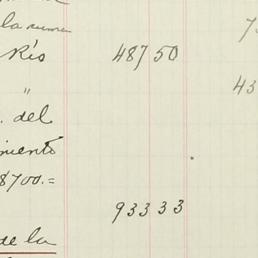 la suma 7
Rís 48750
" 43
. del
miento
8700.=
93333
de la